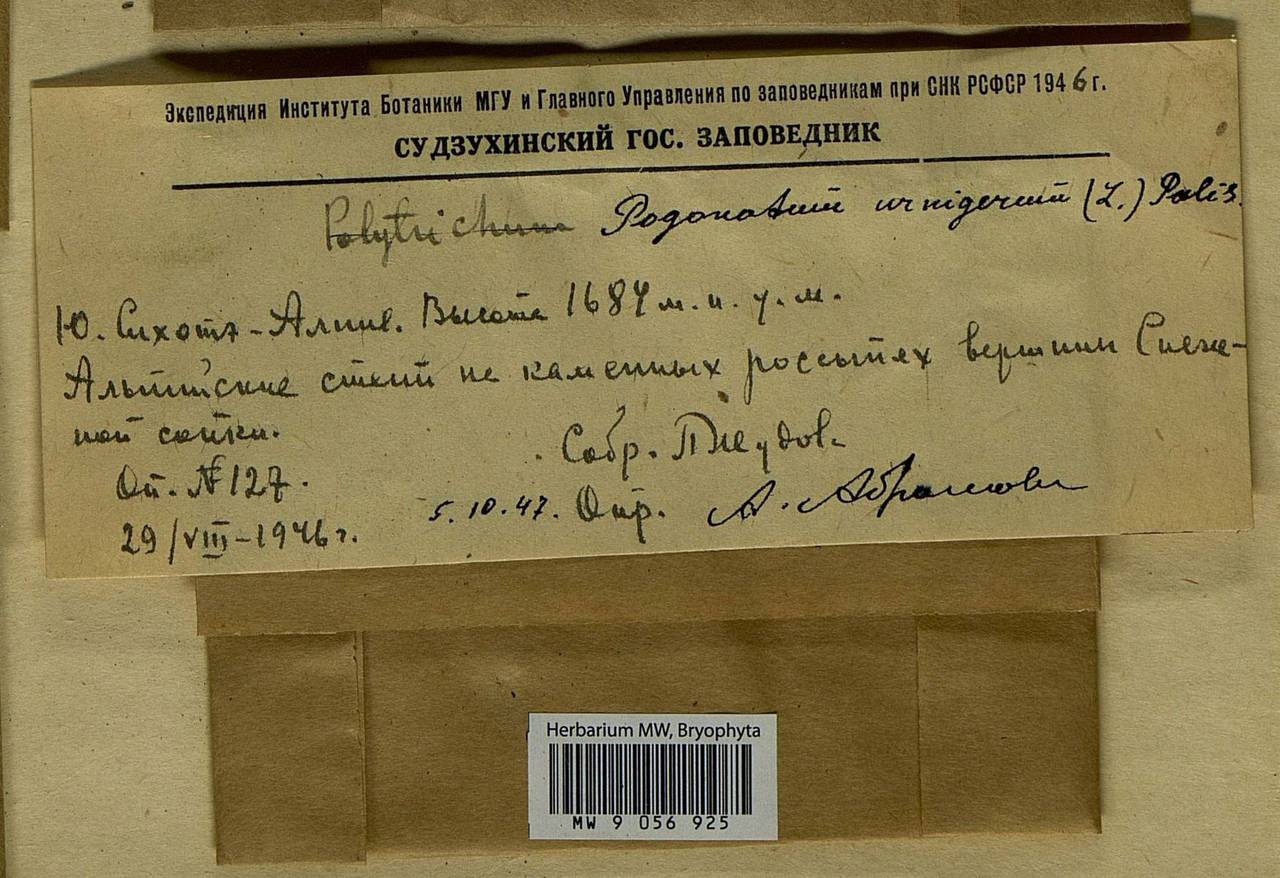 Экспедиция Института Ботаники МГУ и Главного Управления по заповедникам при СНК РСФСР 1946 г.
СУДЗУХИНСКИЙ ГОС. ЗАПОВЕДНИК
Polytrichum Pogonatum urnigerum (L.) Palis.
Ю. Сихотэ-Алинь. Высота 1684 м. н. у. м.
Альпийские на каменных россыпях вершины Снеж-
ной сопки.
Собр.
Оп. № 127.
5.10.47. Опр. А. Абрамова
29/VIII-1946 г.
Herbarium MW, Bryophyta
MW 9 056 925